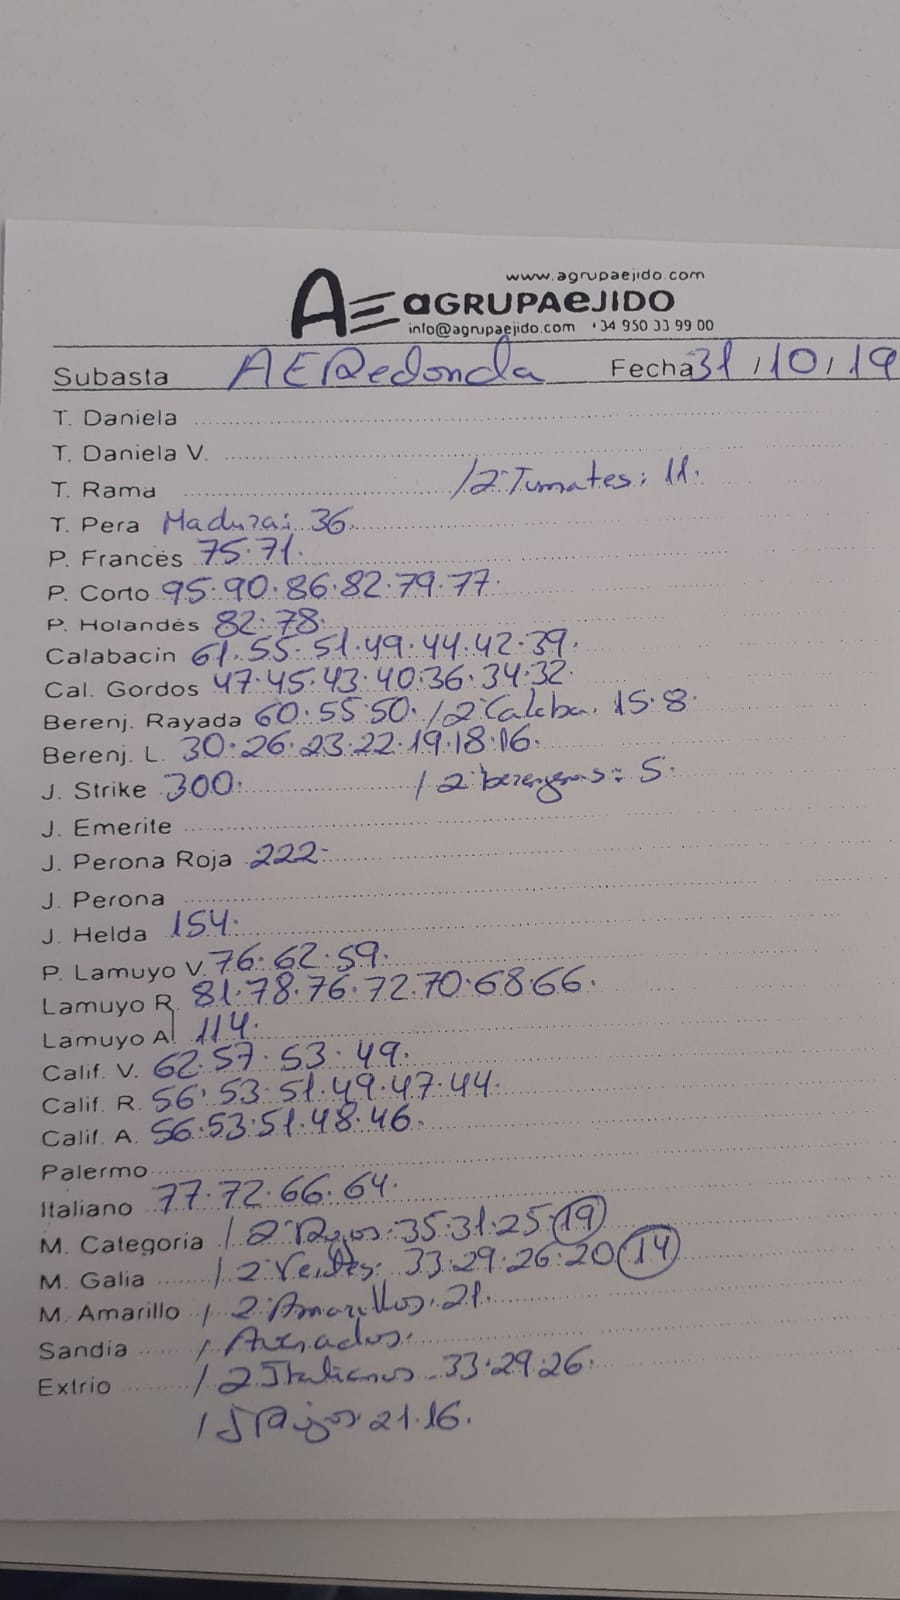 www.agrupaejido.com
AE aGRUPAeJIDO
info@agrupaejido.com +34 950 33 99 00
Subasta AERedonda Fecha 31/10/19
T. Daniela
T. Daniela V.
T. Rama / 2ª Tumates: 11.
T. Pera Madura: 36.
P. Francés 75.71.
P. Corto 95.90.86.82.79.77.
P. Holandés 82.78.
Calabacin 61.55.51.49.44.42.39.
Cal. Gordos 47.45.43.40.36.34.32.
Berenj. Rayada 60.55.50. / 2ª Calaba. 15.8.
Berenj. L. 30.26.23.22.19.18.16.
J. Strike 300. / 2ª berengenas: 5.
J. Emerite
J. Perona Roja 222.
J. Perona
J. Helda 154.
P. Lamuyo V. 76.62.59.
Lamuyo R. 81.78.76.72.70.68.66.
Lamuyo A. 114.
Calif. V. 62.57.53.49.
Calif. R. 56.53.51.49.47.44.
Calif. A. 56.53.51.48.46.
Palermo
Italiano 77.72.66.64.
M. Categoria / 2ª Rojos: 35.31.25.19
M. Galia / 2ª Verdes: 33.29.26.20 14
M. Amarillo / 2ª Amarillos. 21.
Sandia /
Extrio / 2ª Italianos. 33.29.26.
/ Rojos 21.16.